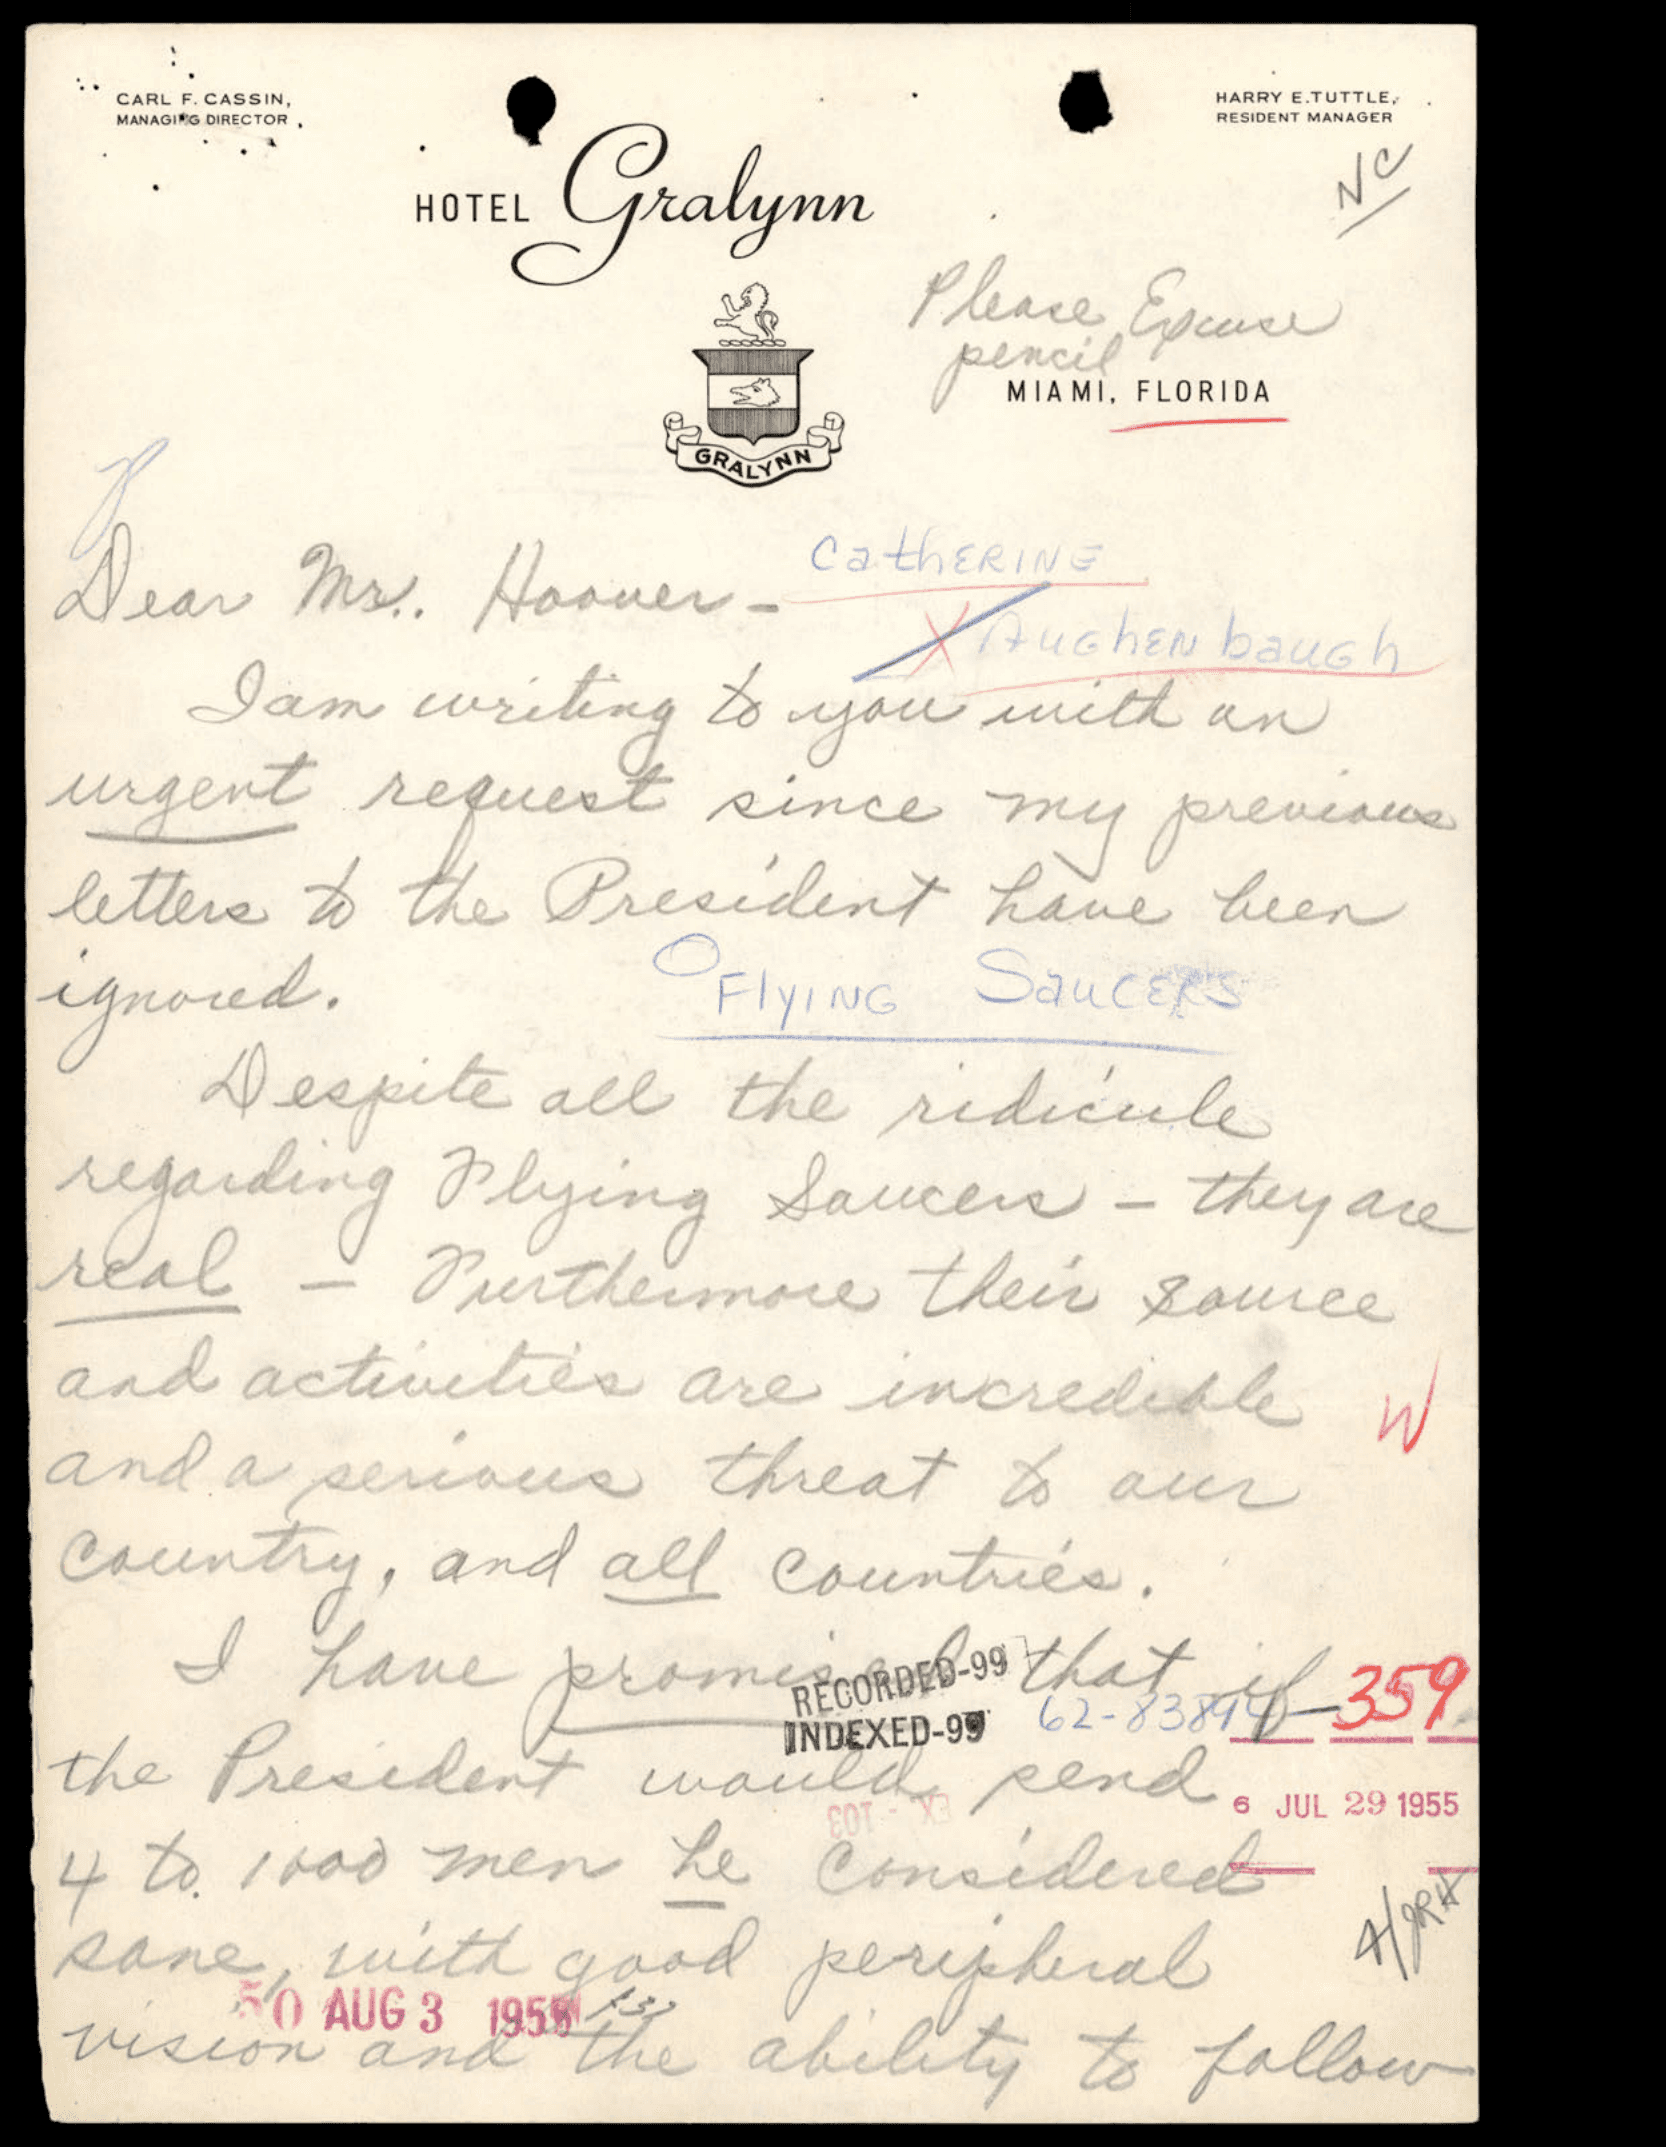 CARL F. CASSIN,
MANAGING DIRECTOR
HARRY E. TUTTLE,
RESIDENT MANAGER
NC
HOTEL Gralynn
Please Excuse
pencil
MIAMI, FLORIDA
GRALYNN
Dear Mr. Hoover -
Catherine
Aughenbaugh
I am writing to you with an
urgent request since my previous
letters to the President have been
ignored.
Flying Saucers
Despite all the ridicule
regarding Flying Saucers - they are
real - Furthermore their source
and activities are incredible
W
and a serious threat to our
country, and all countries.
I have promised that if
RECORDED-99
INDEXED-99
62-83894-359
the President would send
6 JUL 29 1955
EX - 103
4 to 1000 men he considered
sane, with good peripheral
50 AUG 3 1955
vision and the ability to follow